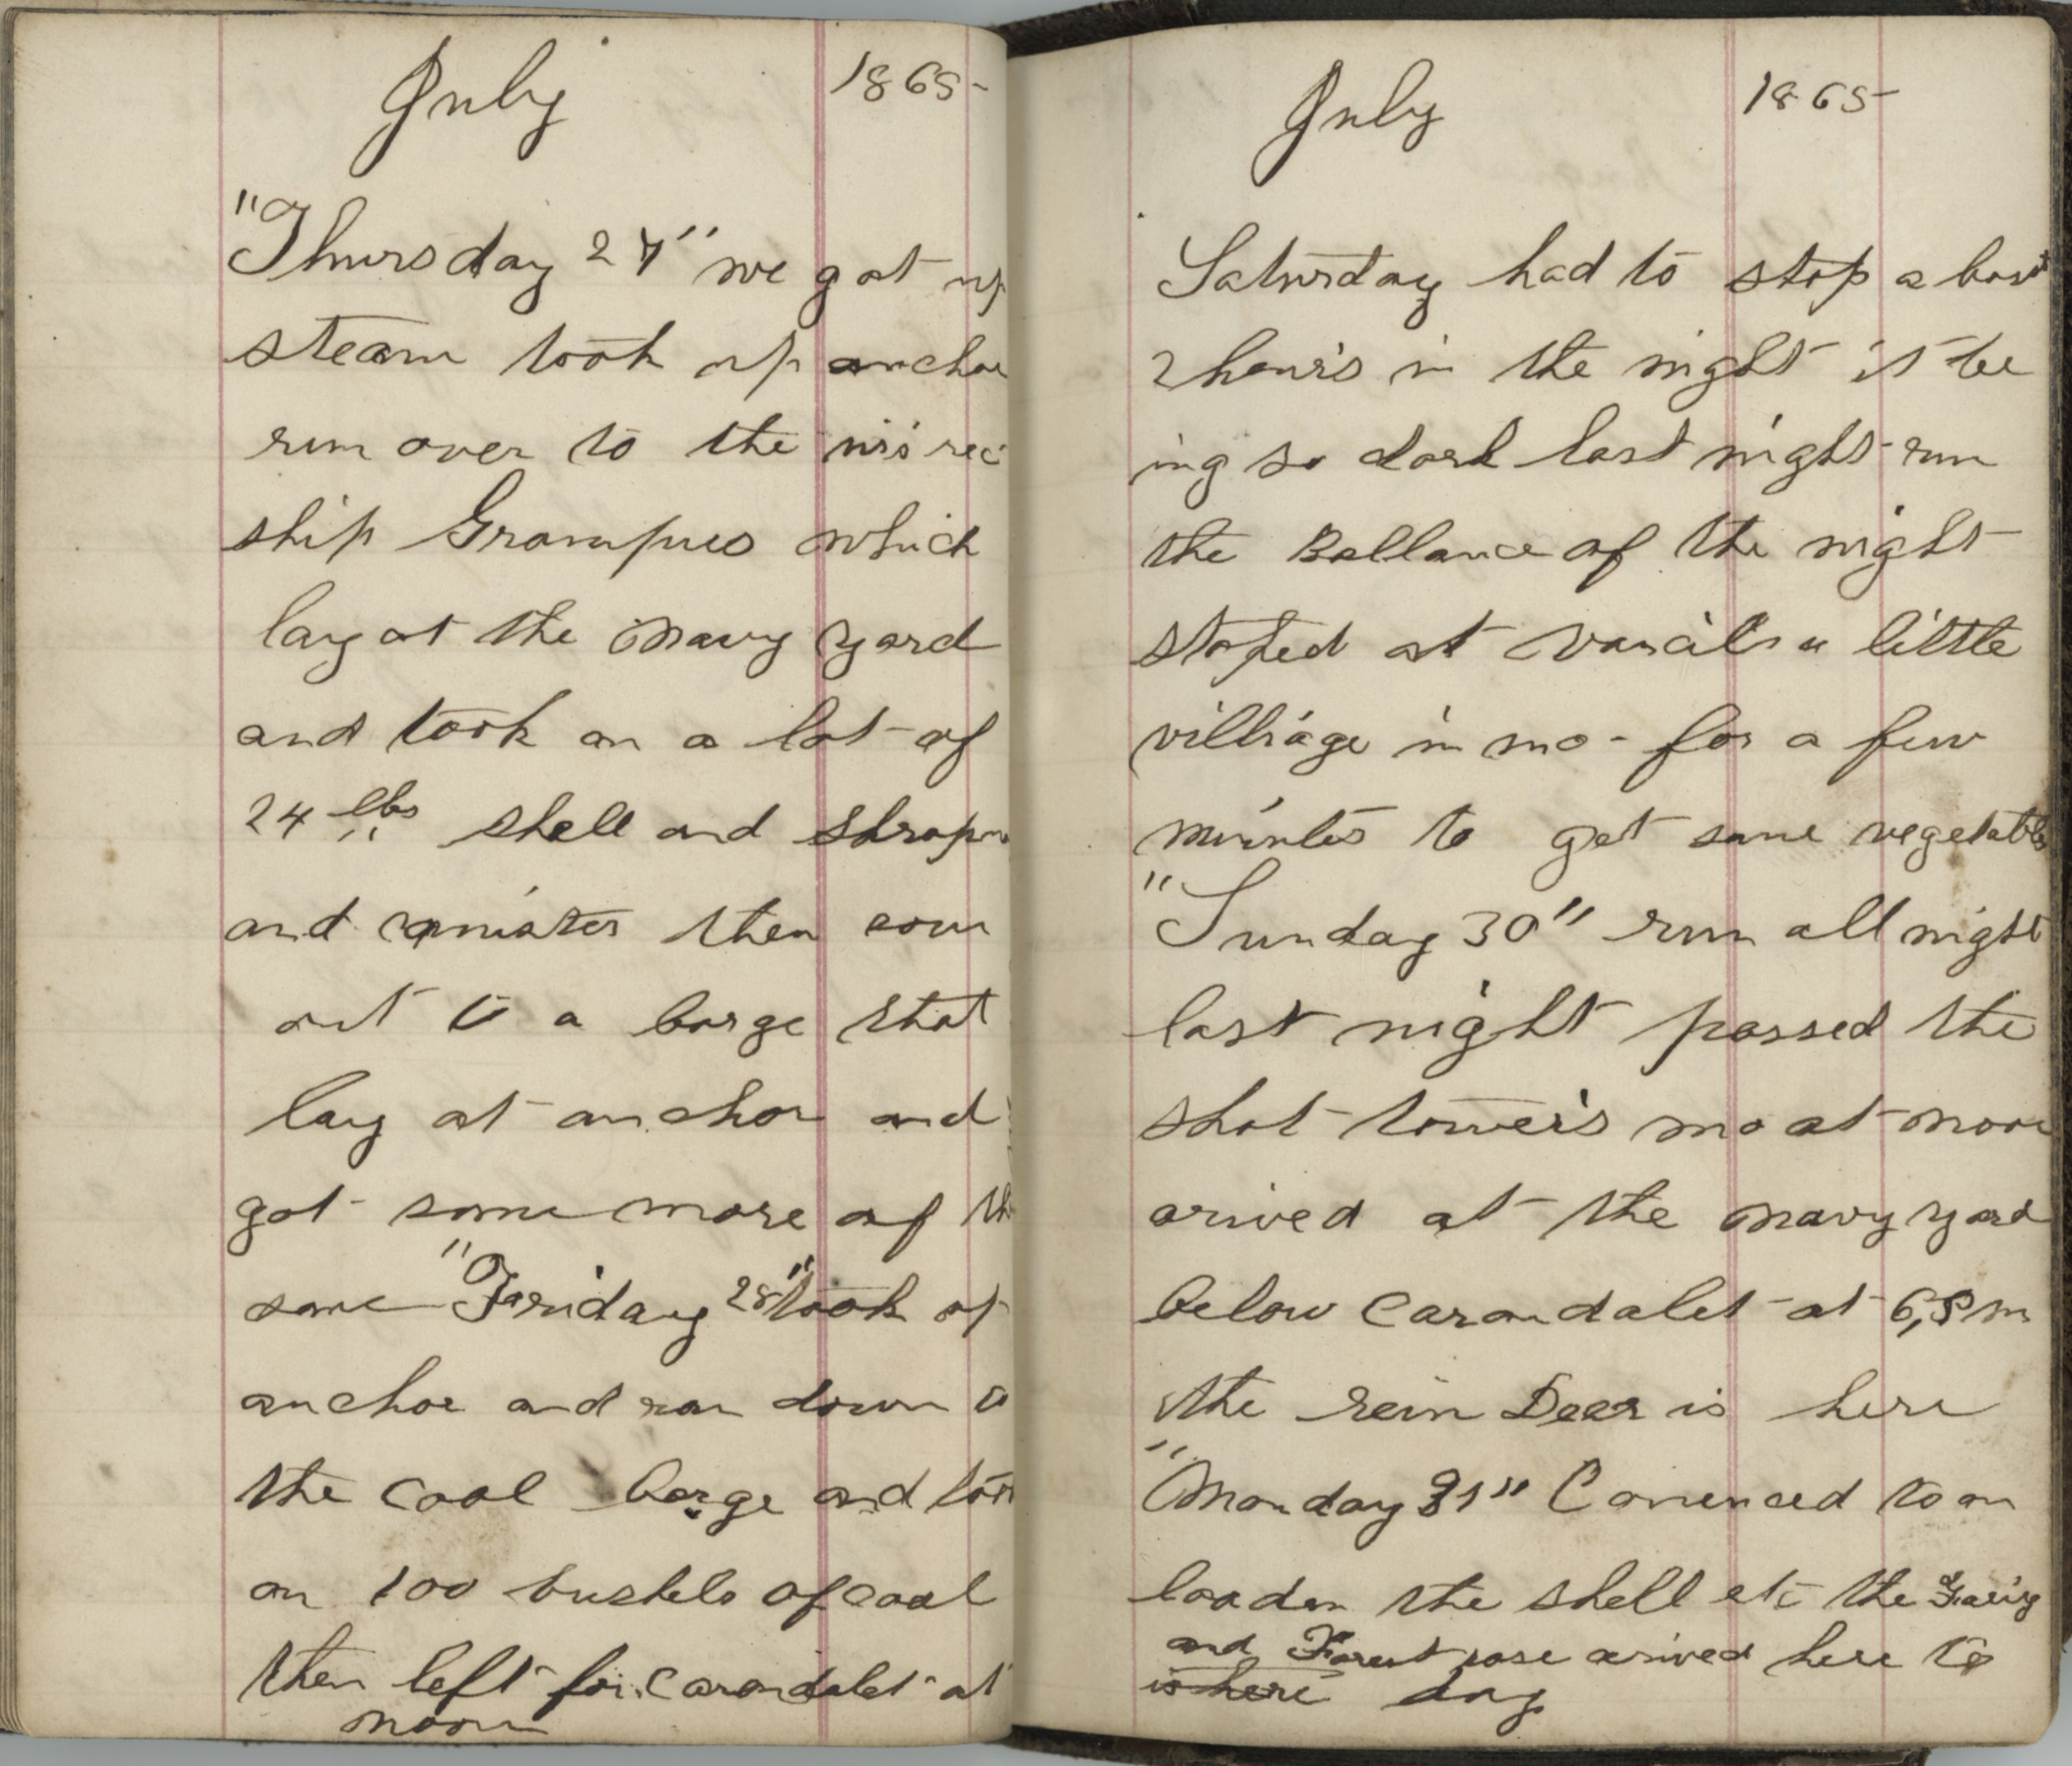 July 1865-
"Thursday 27" we got up
steam took up anchor
run over to the rec
ship Grampus which
lay at the navy yard
and took on a lot of
24 lbs shell and shrapn
and canister then com
out to a barge that
lay at anchor and
got some more of the
same "Friday 28" took up
anchor and ran down to
the coal barge and took
on 100 bushels of coal
then left for Carondalet at
noon
July 1865-
Saturday had to stop about
2 hours in the night it be
ing so dark last night run
the Ballance of the night
stoped at a little
villiage in mo- for a few
minutes to get some vegetables
"Sunday 30" run all night
last night passed the
shot towers mo at noon
arived at the navy yard
below Carondalet at 6,Pm
the rein Deer is here
"Monday 31" Comenced to on
loaden the shell etc the
and Forest rose arived here to
is here day